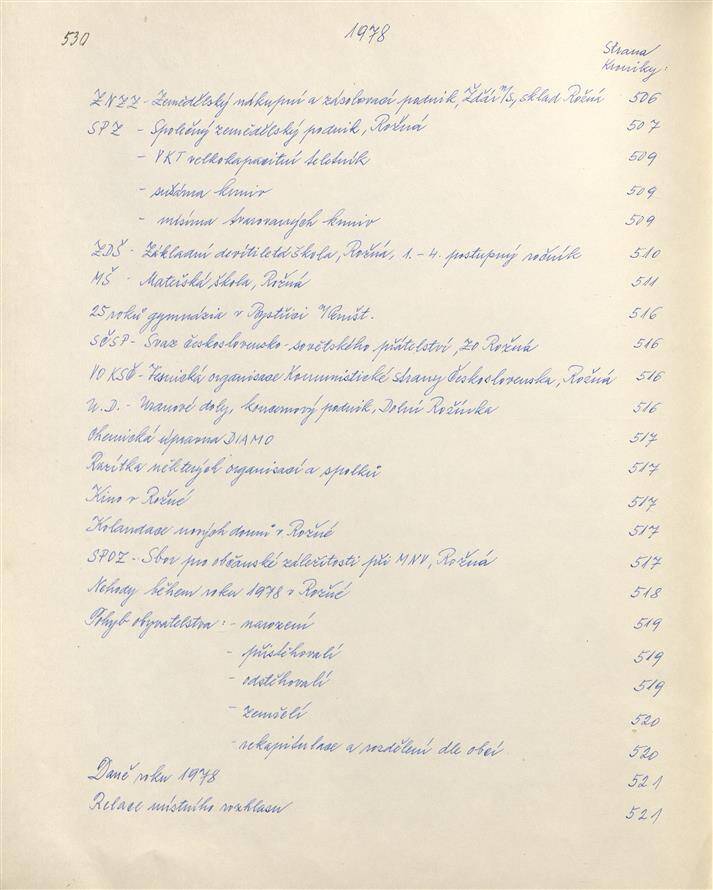 530
1978
Strana
Kroniky:
ZNZZ - Zemědělský nákupní a zásobovací podnik, Žďár n/S, sklad Rožná 506
SPZ - Společný zemědělský podnik, Rožná 507
- VKT velkokapacitní teletník 509
- sušárna krmiv 509
- mísírna tvarovaných krmiv 509
ZDŠ - Základní devítiletá škola, Rožná, 1. - 4. postupný ročník 510
MŠ - Mateřská škola, Rožná 511
25 roků gymnázia v Bystřici n/Pernšt. 516
SČSP - Svaz československo-sovětského přátelství, ZO Rožná 516
VO KSČ - Vesnická organisace Komunistické strany Československa, Rožná 516
U.D. - Uranové doly, koncernový podnik, Dolní Rožínka 516
Chemická úpravna DIAMO 517
Razítka některých organisací a spolků 517
Kino v Rožné 517
Kolaudace nových domů v Rožné 517
SPOZ - Sbor pro občanské záležitosti při MNV, Rožná 517
Nehody během roku 1978 v Rožné 518
Pohyb obyvatelstva: - narození 519
- přistěhovalí 519
- odstěhovalí 519
- zemřelí 520
- rekapitulace a rozdělení dle obcí 520
Daně roku 1978 521
Relace místního rozhlasu 521